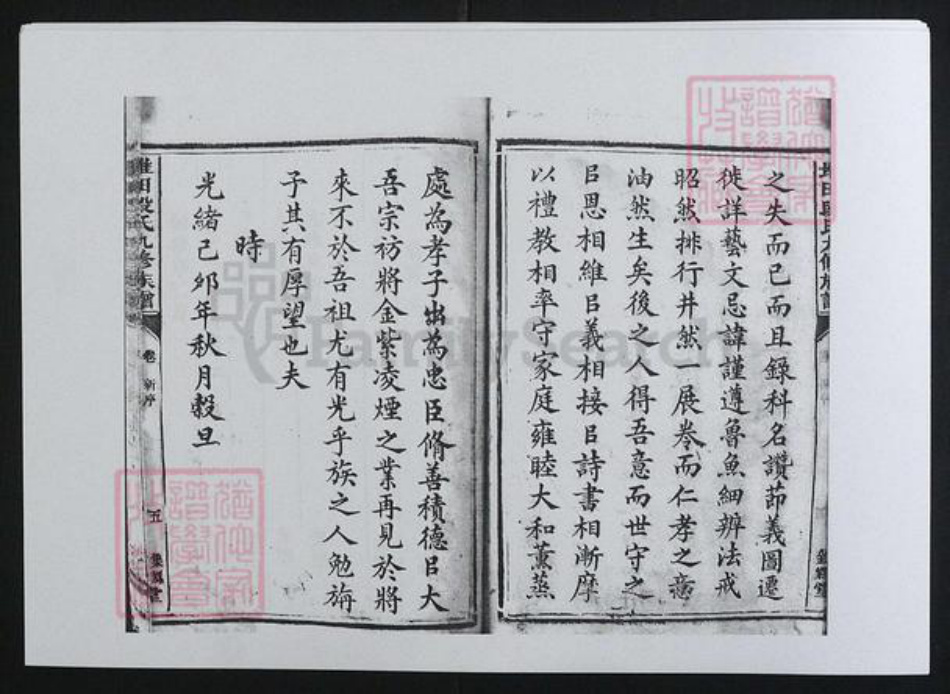 之失而已而且錄科名讚節義圖遷
徙詳藝文忌諱謹遵魯魚細辨法戒
昭然排行井然一展卷而仁孝之意
油然生矣後之人得吾意而世守之
㠯恩相維㠯義相接㠯詩書相漸摩
以禮教相率守家庭雍睦大和薰蒸
處為孝子出為忠臣脩善積德㠯大
吾宗祊將金紫凌煙之業再見於將
來不於吾祖尤有光乎族之人勉旃
子其有厚望也夫
時
光緒己卯年秋月穀旦
田段氏九修族譜
卷 新序
五
堂
FamilySearch